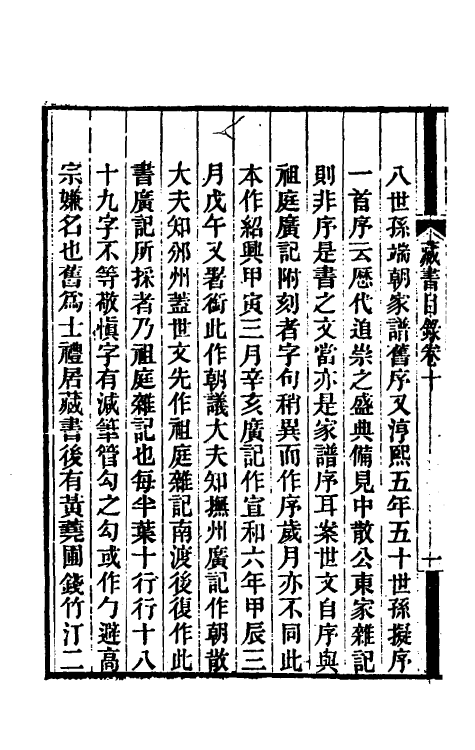 藏書目錄卷十
十
八世孫端朝家譜舊序又淳熙五年五十世孫擬序
一首序云歴代追崇之盛典備見中散公東家雜記
則非序是書之文當亦是家譜序耳案世文自序與
祖庭廣記附刻者字句稍異而作序歲月亦不同此
本作紹興甲寅三月辛亥廣記作宣和六年甲辰三
月戊午又署銜此作朝議大夫知撫州廣記作朝散
大夫知邠州蓋世文先作祖庭雜記南渡後復作此
書廣記所採者乃祖庭雜記也每半葉十行行十八
十九字不等敬慎字有減筆管勾之勾或作勹避高
宗嫌名也舊爲士禮居藏書後有黃蕘圃錢竹汀二